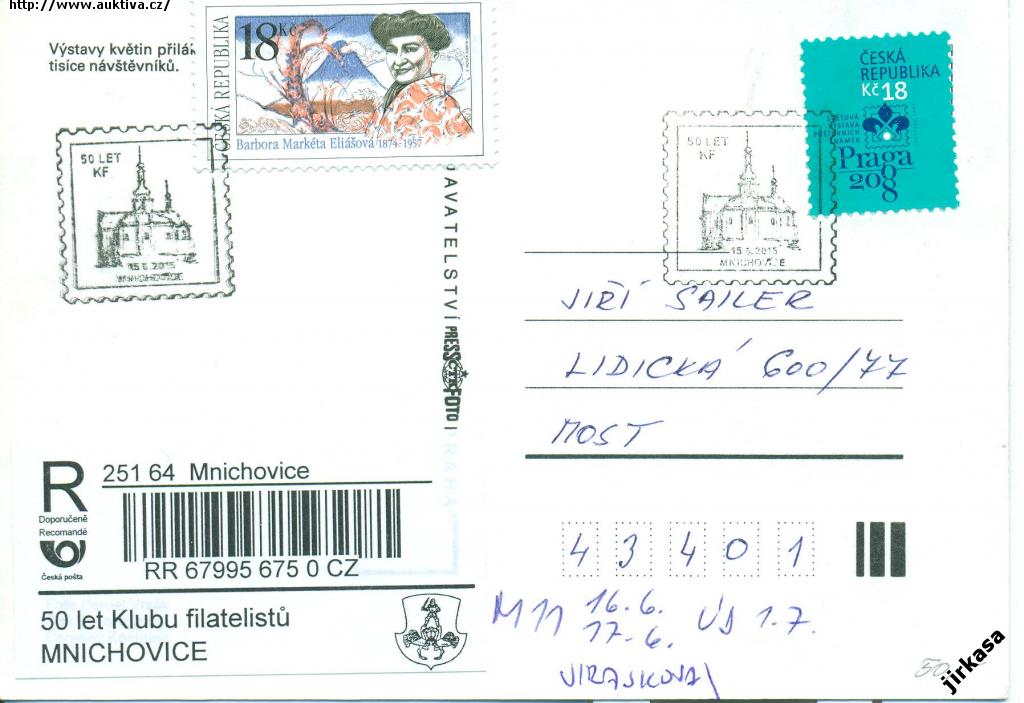 http://www.auktiva.cz/
Výstavy květin přilá
tisíce návštěvníků.
18 Kč
ČESKÁ REPUBLIKA
Barbora Markéta Eliášová 1874-1957
ČESKÁ
REPUBLIKA
Kč 18
SVĚTOVÁ
VÝSTAVA
POŠTOVNÍCH
ZNÁMEK
Praga
2008
50 LET
KF
15.6.2015
MNICHOVICE
50 LET
KF
15.6.2015
MNICHOVICE
AVATELSTVÍ PRESSFOTO
PRAHA
JIŘÍ SAILER
LIDICKÁ 600/77
MOST
43401
R
Doporučeně
Recomandé
Česká pošta
251 64 Mnichovice
RR 67995 675 0 CZ
50 let Klubu filatelistů
MNICHOVICE
M11 16.6. ÚS 1.7.
17.6.
50
jirkasa